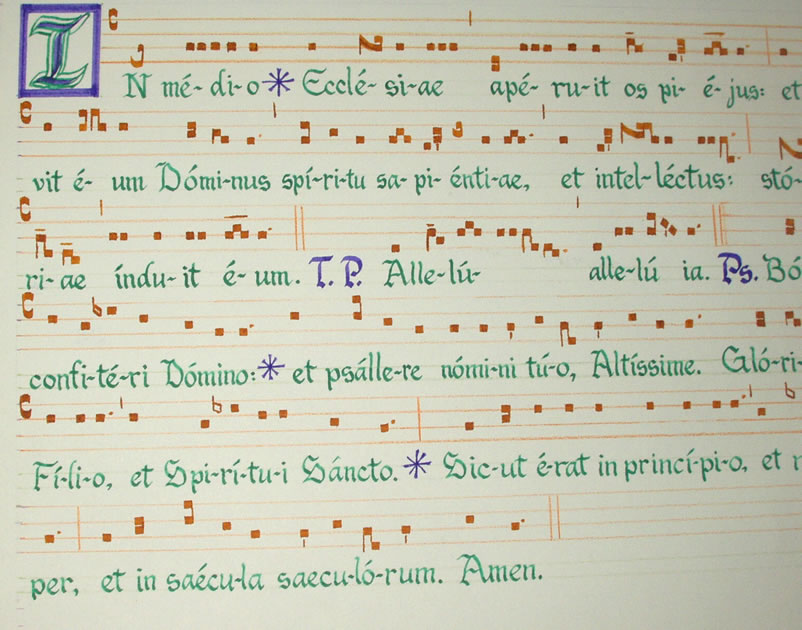 IN mé-di-o * Ecclé-si-ae apé-ru-it os pi- é-jus: et
vit é-um Dómi-nus spí-ri-tu sa-pi-énti-ae, et intel-léctus: stó-
ri-ae índu-it é-um. T. P. Alle-lú- alle-lú ia. Ps. Bó
confi-té-ri Dómino: * et psálle-re nómi-ni tú-o, Altíssime. Gló-ri-
Fí-li-o, et Spi-rí-tu-i Sáncto. * Sic-ut é-rat in princí-pi-o, et
per, et in saécu-la saecu-ló-rum. Amen.